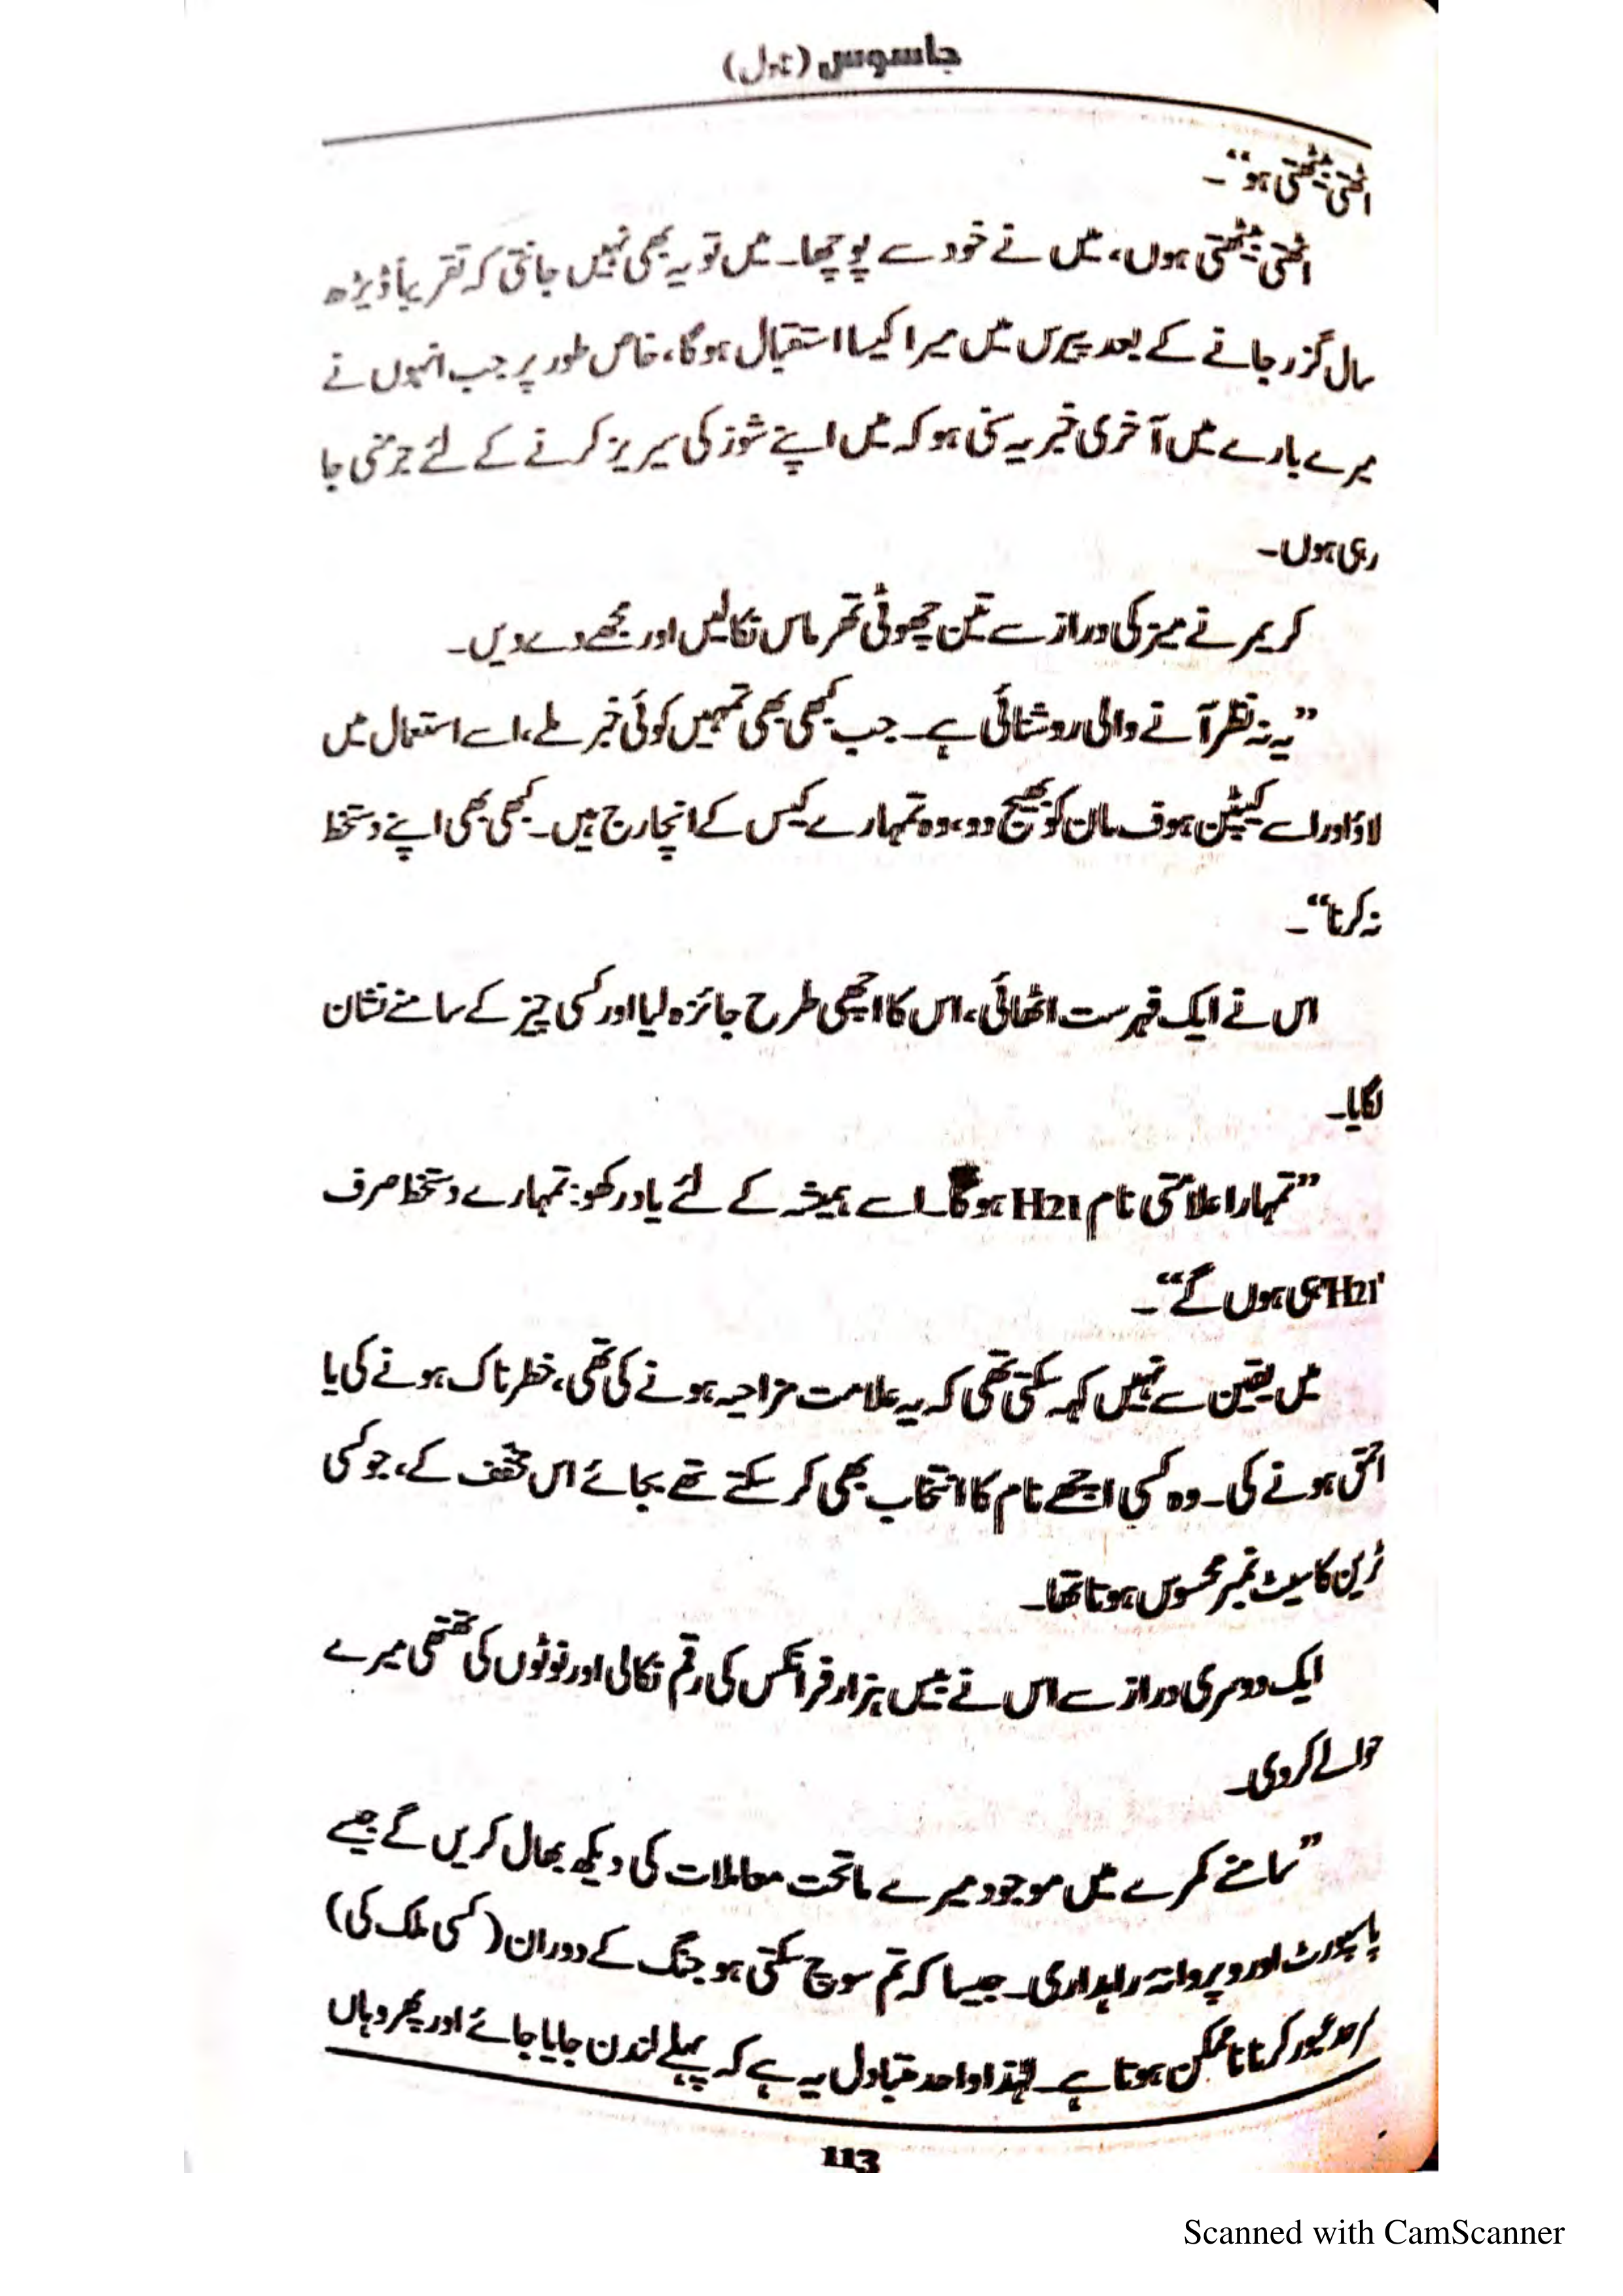 جاسوس (ناول)
اٹھتی بیٹھتی ہو“۔
اٹھتی بیٹھتی ہوں، میں نے خود سے پوچھا۔ میں تو یہ بھی نہیں جانتی کہ تقریباً ڈیڑھ
سال گزر جانے کے بعد پیرس میں میرا کیسا استقبال ہوگا، خاص طور پر جب انہوں نے
میرے بارے میں آخری خبر یہ سنی ہو کہ میں اپنے شوز کی سیریز کرنے کے لئے جرمنی جا
رہی ہوں۔
کریمر نے میز کی دراز سے تین چھوٹی تھرماس نکالیں اور مجھے دے دیں۔
”یہ نہ نظر آنے والی روشنائی ہے۔ جب کبھی بھی تمہیں کوئی خبر ملے، اسے استعمال میں
لاؤ اور اسے کیپٹن ہوف مان کو بھیج دو، وہ تمہارے کیس کے انچارج ہیں۔ کبھی بھی اپنے دستخط
نہ کرنا“۔
اس نے ایک فہرست اٹھائی، اس کا اچھی طرح جائزہ لیا اور کسی چیز کے سامنے نشان
لگایا۔
”تمہارا علامتی نام H21 ہوگا۔ اسے ہمیشہ کے لئے یاد رکھو: تمہارے دستخط صرف
'H21' ہی ہوں گے“۔
میں یقین سے نہیں کہہ سکتی تھی کہ یہ علامت مزاحیہ ہونے کی تھی، خطرناک ہونے کی یا
احمق ہونے کی۔ وہ کسی اچھے نام کا انتخاب بھی کر سکتے تھے بجائے اس مخفف کے، جو کسی
ٹرین کا سیٹ نمبر محسوس ہوتا تھا۔
ایک دوسری دراز سے اس نے بیس ہزار فرانکس کی رقم نکالی اور نوٹوں کی گتھی میرے
حوالے کر دی۔
”سامنے کمرے میں موجود میرے ماتحت معاملات کی دیکھ بھال کریں گے جیسے
پاسپورٹ اور پروانۂ راہداری۔ جیسا کہ تم سوچ سکتی ہو جنگ کے دوران (کسی ملک کی)
سرحد عبور کرنا ناممکن ہوتا ہے۔ لہٰذا واحد متبادل یہ ہے کہ پہلے لندن جایا جائے اور پھر وہاں
113
Scanned with CamScanner